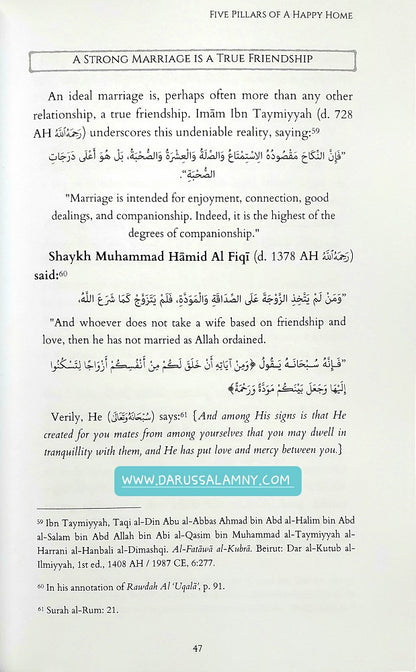 FIVE PILLARS OF A HAPPY HOME
A STRONG MARRIAGE IS A TRUE FRIENDSHIP
An ideal marriage is, perhaps often more than any other
relationship, a true friendship. Imām Ibn Taymiyyah (d. 728
AH رَحِمَهُ ٱللَّهُ) underscores this undeniable reality, saying:⁵⁹
”فَإِنَّ النِّكَاحَ مَقْصُودُهُ الِاسْتِمْتَاعُ وَالصِّلَةُ وَالْعِشْرَةُ وَالصُّحْبَةُ، بَلْ هُوَ أَعْلَى دَرَجَاتِ
الصُّحْبَةِ“.
"Marriage is intended for enjoyment, connection, good
dealings, and companionship. Indeed, it is the highest of the
degrees of companionship."
Shaykh Muhammad Hāmid Al Fiqī (d. 1378 AH رَحِمَهُ ٱللَّهُ)
said:⁶⁰
”وَمَنْ لَمْ يَتَّخِذِ الزَّوْجَةَ عَلَى الصَّدَاقَةِ وَالْمَوَدَّةِ، فَلَمْ يَتَزَوَّجْ كَمَا شَرَعَ اللَّهُ،
"And whoever does not take a wife based on friendship and
love, then he has not married as Allah ordained.
”فَإِنَّهُ سُبْحَانَهُ يَقُولُ ﴿وَمِنْ آيَاتِهِ أَنْ خَلَقَ لَكُمْ مِنْ أَنْفُسِكُمْ أَزْوَاجًا لِتَسْكُنُوا
إِلَيْهَا وَجَعَلَ بَيْنَكُمْ مَوَدَّةً وَرَحْمَةً﴾
Verily, He (سُبْحَانَهُ وَتَعَالَىٰ) says:⁶¹ {And among His signs is that He
created for you mates from among yourselves that you may dwell in
tranquillity with them, and He has put love and mercy between you.}
WWW.DARUSSALAMNY.COM
⁵⁹ Ibn Taymiyyah, Taqi al-Din Abu al-Abbas Ahmad bin Abd al-Halim bin Abd
al-Salam bin Abd Allah bin Abi al-Qasim bin Muhammad al-Taymiyyah al-
Harrani al-Hanbali al-Dimashqi. Al-Fatāwā al-Kubrā. Beirut: Dar al-Kutub al-
Ilmiyyah, 1st ed., 1408 AH / 1987 CE, 6:277.
⁶⁰ In his annotation of Rawdah Al 'Uqalā', p. 91.
⁶¹ Surah al-Rum: 21.
47